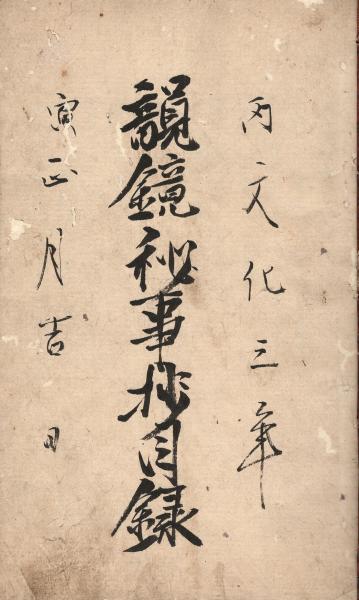 丙文化三年
韻鏡秘事抄目録
寅正月吉日